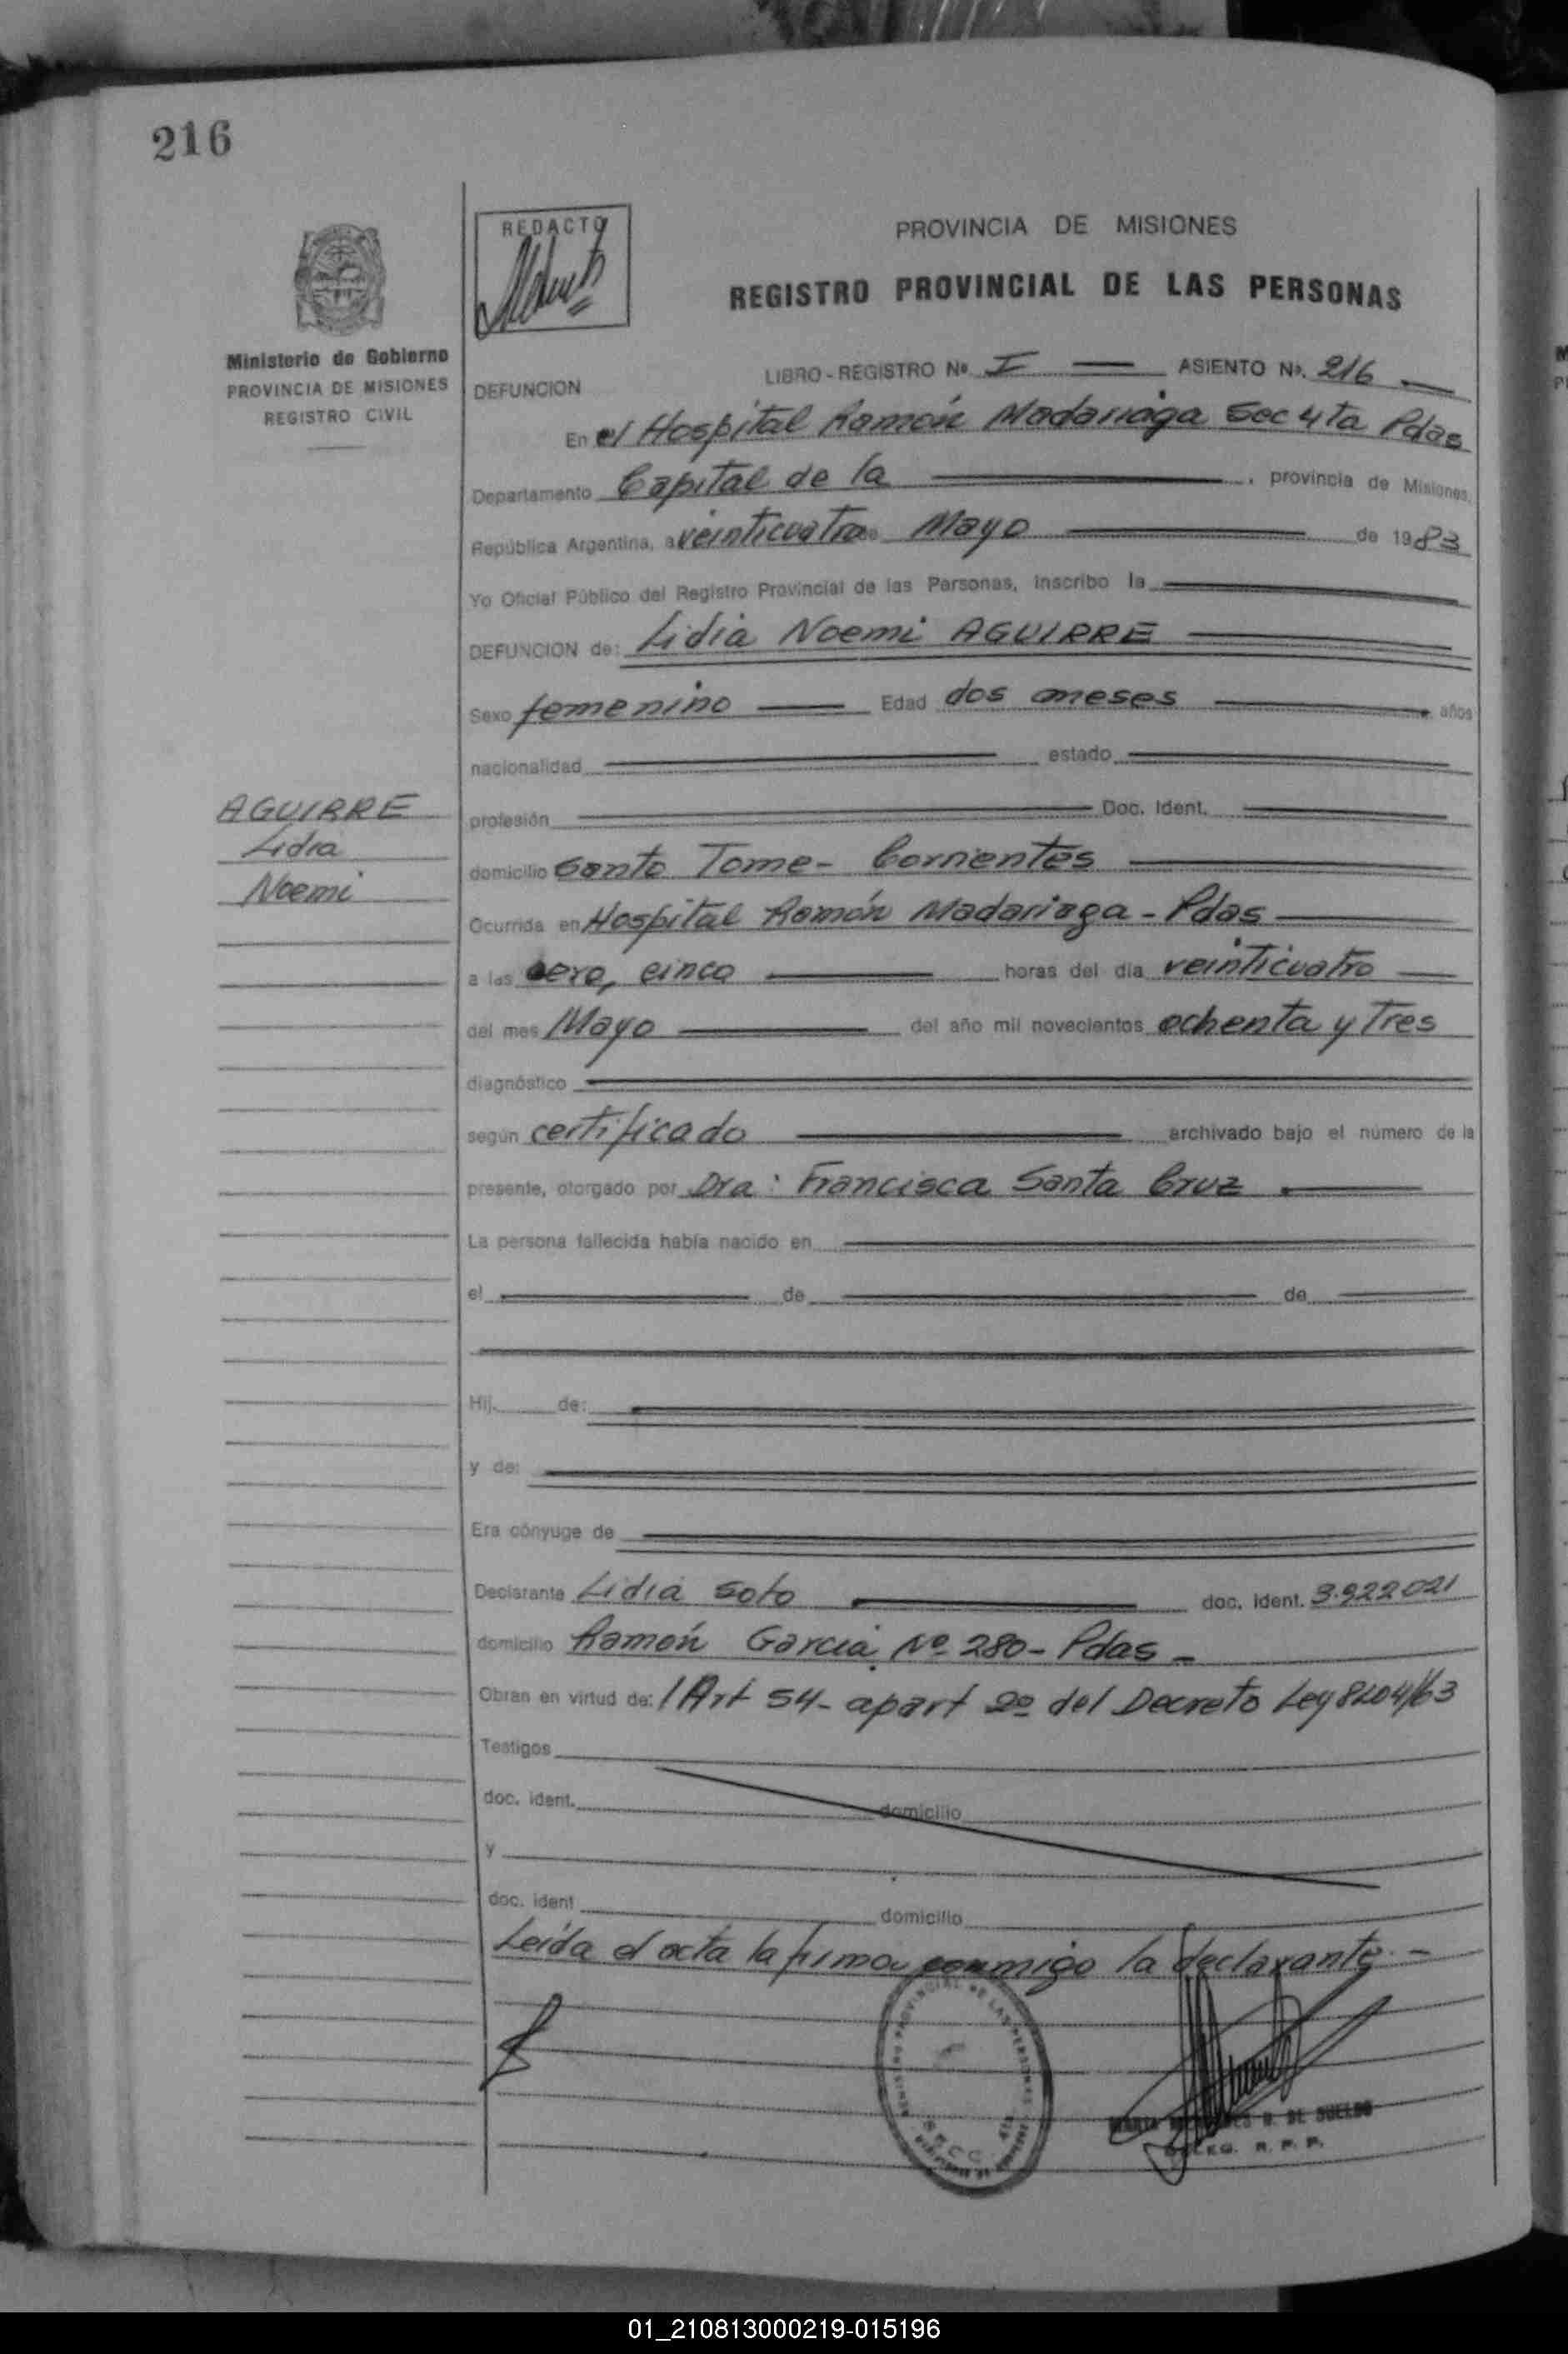 216
REDACTO
PROVINCIA DE MISIONES
REGISTRO PROVINCIAL DE LAS PERSONAS
Ministerio de Gobierno
PROVINCIA DE MISIONES
REGISTRO CIVIL
LIBRO - REGISTRO Nº I ASIENTO Nº. 216
DEFUNCION
En el Hospital Ramón Madariaga Sec 4ta Pdas
Departamento Capital de la , provincia de Misiones,
República Argentina, a veinticuatro de Mayo de 1983
Yo Oficial Público del Registro Provincial de las Personas, inscribo la
DEFUNCION de: Lidia Noemi AGUIRRE
Sexo femenino Edad dos meses años
nacionalidad estado
AGUIRRE
Lidia
Noemi
profesión Doc. Ident.
domicilio Santo Tome - Corrientes
Ocurrida en Hospital Ramón Madariaga - Pdas
a las cero, cinco horas del día veinticuatro
del mes Mayo del año mil novecientos ochenta y Tres
diagnóstico
según certificado archivado bajo el número de la
presente, otorgado por Dra: Francisca Santa Cruz
La persona fallecida había nacido en
el de de
Hij de:
y de:
Era cónyuge de
Declarante Lidia Soto doc. ident. 3.922021
domicilio Ramón Garcia Nº 280 - Pdas -
Obran en virtud de: / Art 54 - apart 2º del Decreto Ley 8204/63
Testigos
doc. ident. domicilio
y
doc. ident domicilio
Leída el acta la firma conmigo la declarante. -
REGISTRO PROVINCIAL DE LAS PERSONAS
DE SUELDO
DELEG. R. P. P.
01_210813000219-015196